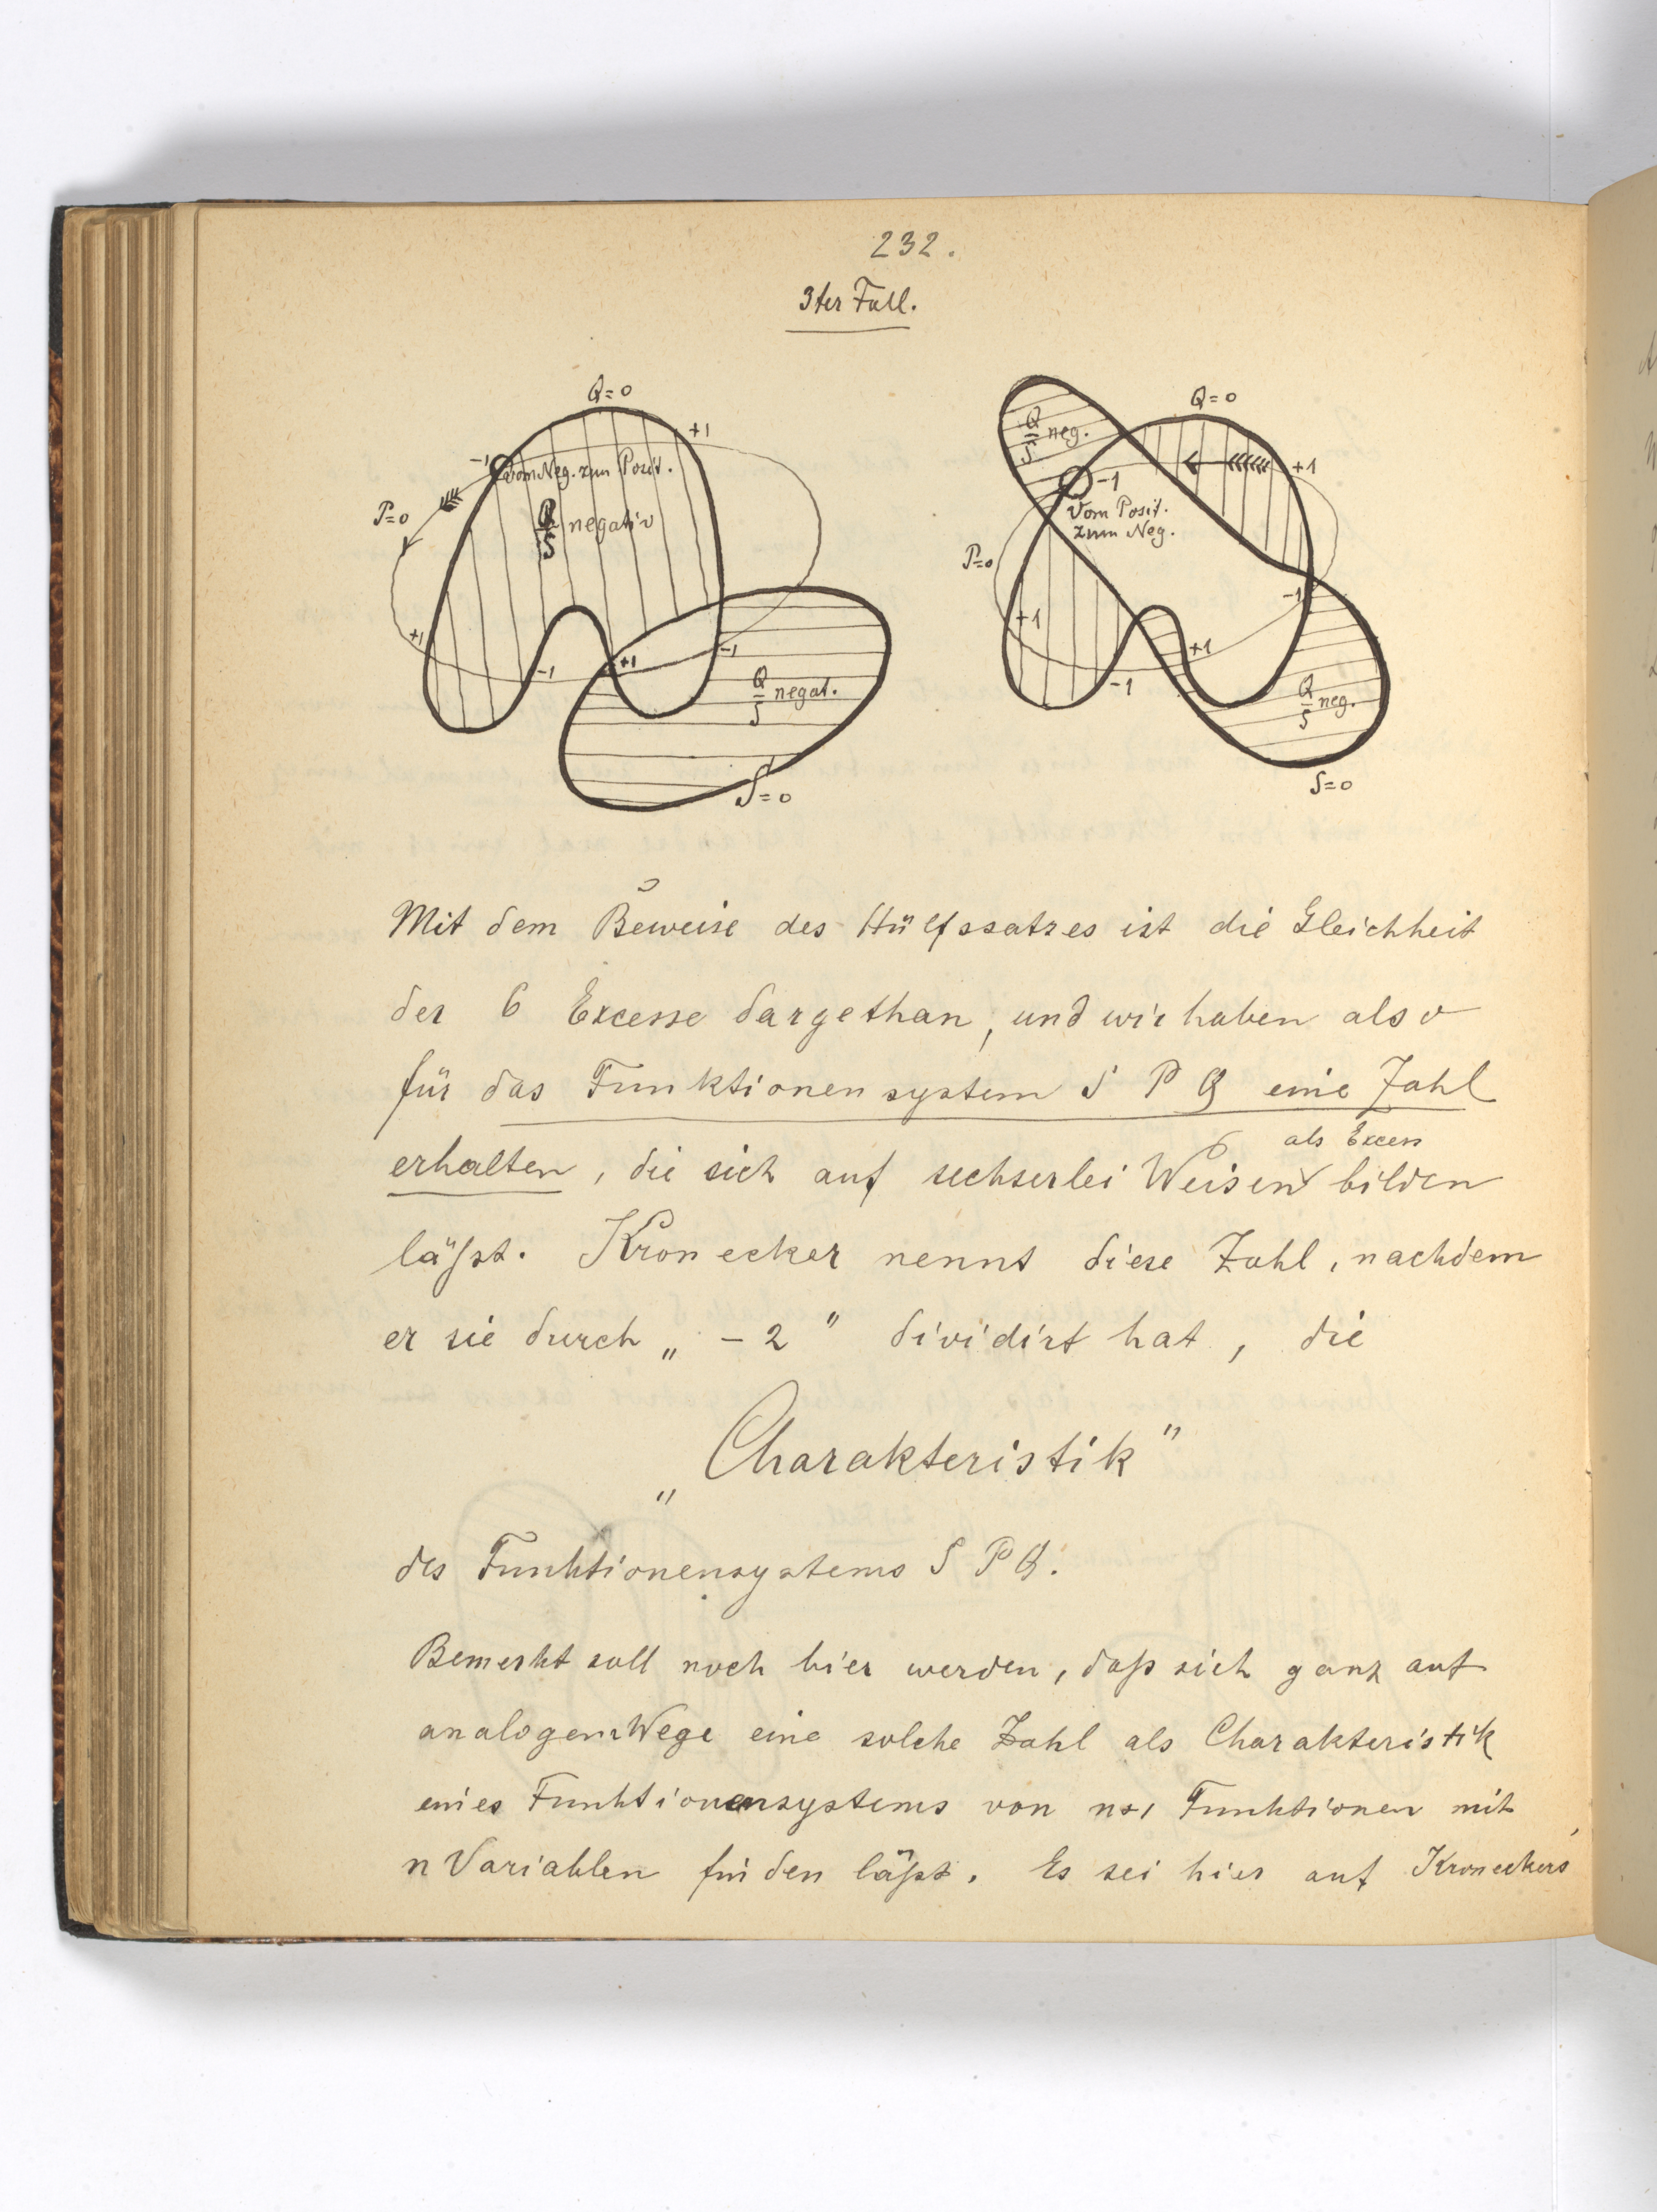 232.
3ter Fall.
Q=0
+1
-1
vom Neg. zum Posit.
P=0
Q/S negativ
+1
-1
+1
-1
Q/S negat.
S=0
Q=0
Q/S neg.
+1
-1
Vom Posit.
zum Neg.
P=0
-1
+1
+1
-1
Q/S neg.
S=0
Mit dem Beweise des Hülfssatzes ist die Gleichheit
der 6 Excesse dargethan, und wir haben also
für das Funktionensystem S P Q eine Zahl
als Excess
erhalten, die sich auf sechserlei Weisen bilden
läßt. Kronecker nennt diese Zahl, nachdem
er sie durch „ -2 " dividirt hat, die
„Charakteristik"
des Funktionensystems S P Q.
Bemerkt soll noch hier werden, daß sich ganz auf
analogem Wege eine solche Zahl als Charakteristik
eines Funktionensystems von n+1 Funktionen mit
n Variablen finden läßt. Es sei hier auf Kroneckers'